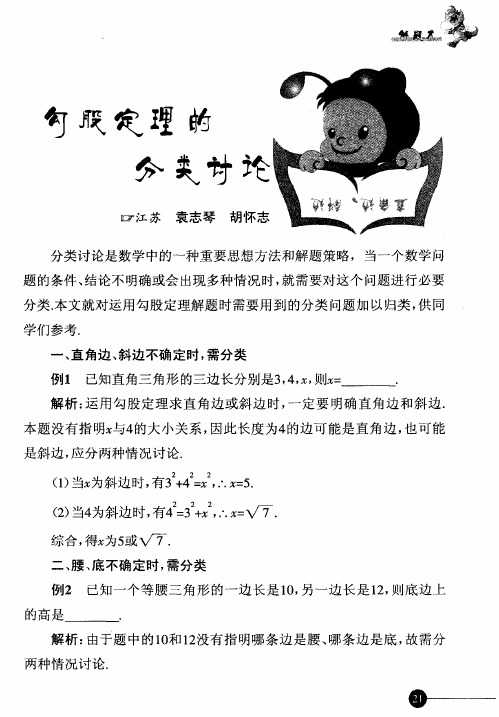 勾股定理的
分类讨论
直角边、斜边
☞江苏 袁志琴 胡怀志
分类讨论是数学中的一种重要思想方法和解题策略，当一个数学问
题的条件、结论不明确或会出现多种情况时，就需要对这个问题进行必要
分类.本文就对运用勾股定理解题时需要用到的分类问题加以归类，供同
学们参考.
一、直角边、斜边不确定时，需分类
例1 已知直角三角形的三边长分别是3，4，x，则x=______.
解析：运用勾股定理求直角边或斜边时，一定要明确直角边和斜边.
本题没有指明x与4的大小关系，因此长度为4的边可能是直角边，也可能
是斜边，应分两种情况讨论.
(1)当x为斜边时，有3²+4²=x²，∴x=5.
(2)当4为斜边时，有4²=3²+x²，∴x=√7.
综合，得x为5或√7.
二、腰、底不确定时，需分类
例2 已知一个等腰三角形的一边长是10，另一边长是12，则底边上
的高是______.
解析：由于题中的10和12没有指明哪条边是腰、哪条边是底，故需分
两种情况讨论.
21